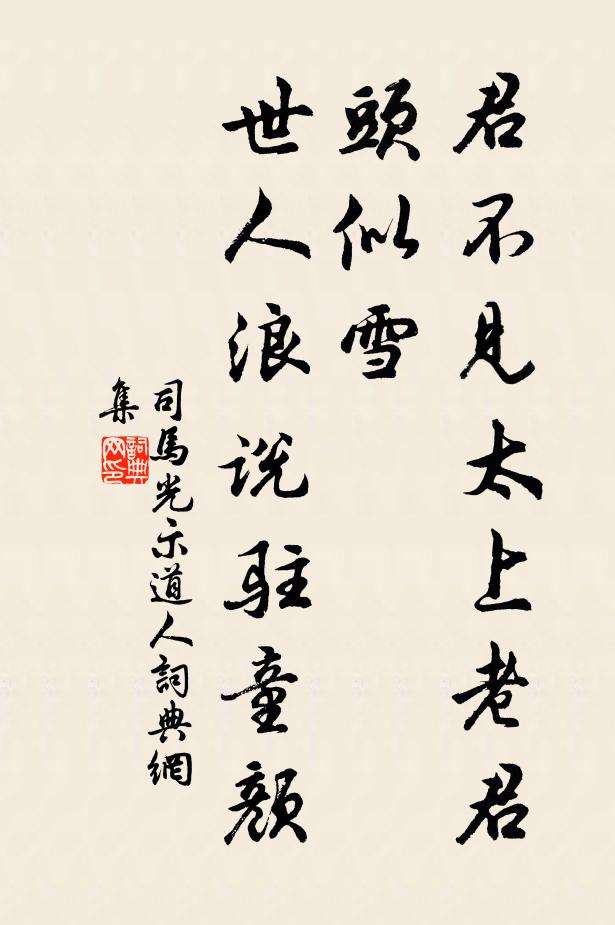 君不見太上老君
頭似雪
世人浪説駐童顏
司馬光示道人詞典網
集
詞典
网印